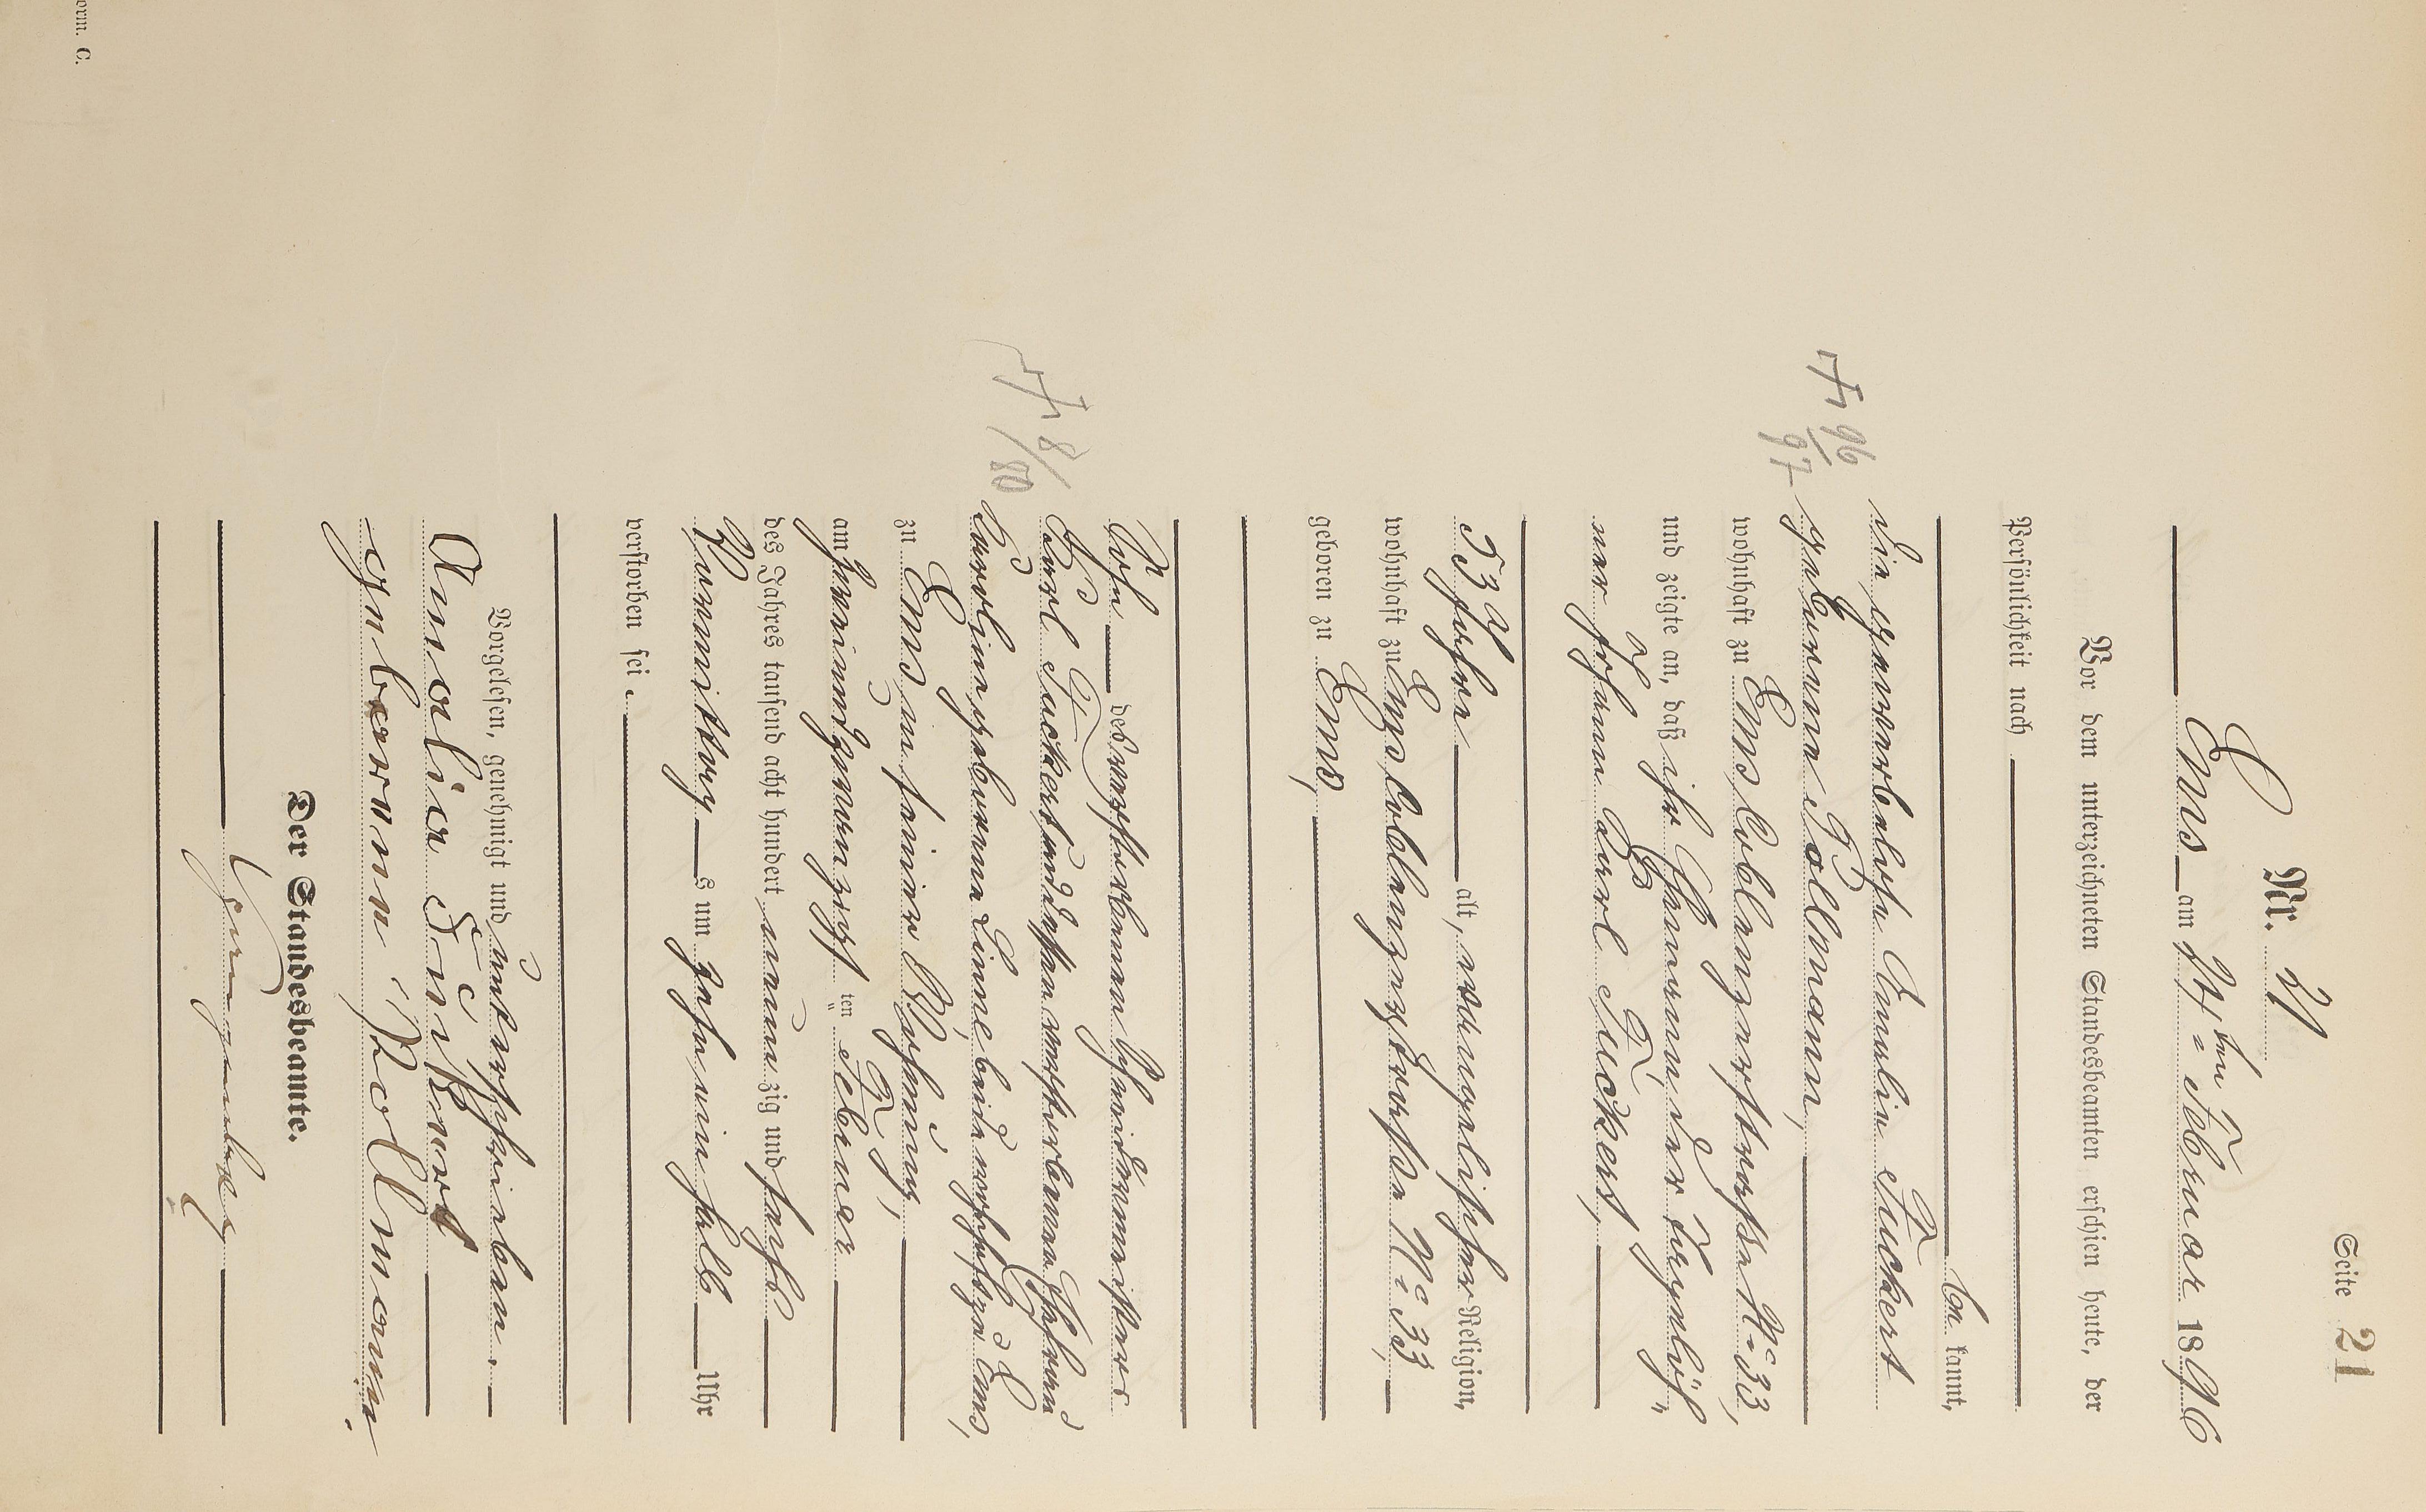 Seite 21
Nr. 21
Ems am 24ten Februar 1896
Vor dem unterzeichneten Standesbeamten erschien heute, der
Persönlichkeit nach
be kannt,
die gewerbelose Amalie Fuckert
geborene Pollmann,
wohnhaft zu Ems, Coblenzerstrasse No 33,
und zeigte an, daß ihr Ehemann der Tagelöh-
ner Johann Carl Fuckert,
53 Jahre alt, evangelischer Religion,
wohnhaft zu Ems, Coblenzerstrasse No 33,
geboren zu Ems,
Sohn des verstorbenen Schreinermeisters
Carl Fuckert und dessen verstorbenen Ehefrau
Caroline geborene Linne, beide wohnhaft zu Ems,
zu Ems in seiner Wohnung,
am zweiundzwanzigsten Februar
des Jahres tausend acht hundert neunzig und sechs
Vormittags um zehn ein halb Uhr
verstorben sei.
Vorgelesen, genehmigt und unterschrieben.
Amalia Fuckert
geborene Pollmann
Der Standesbeamte.
96/97
8/80
orm. C.